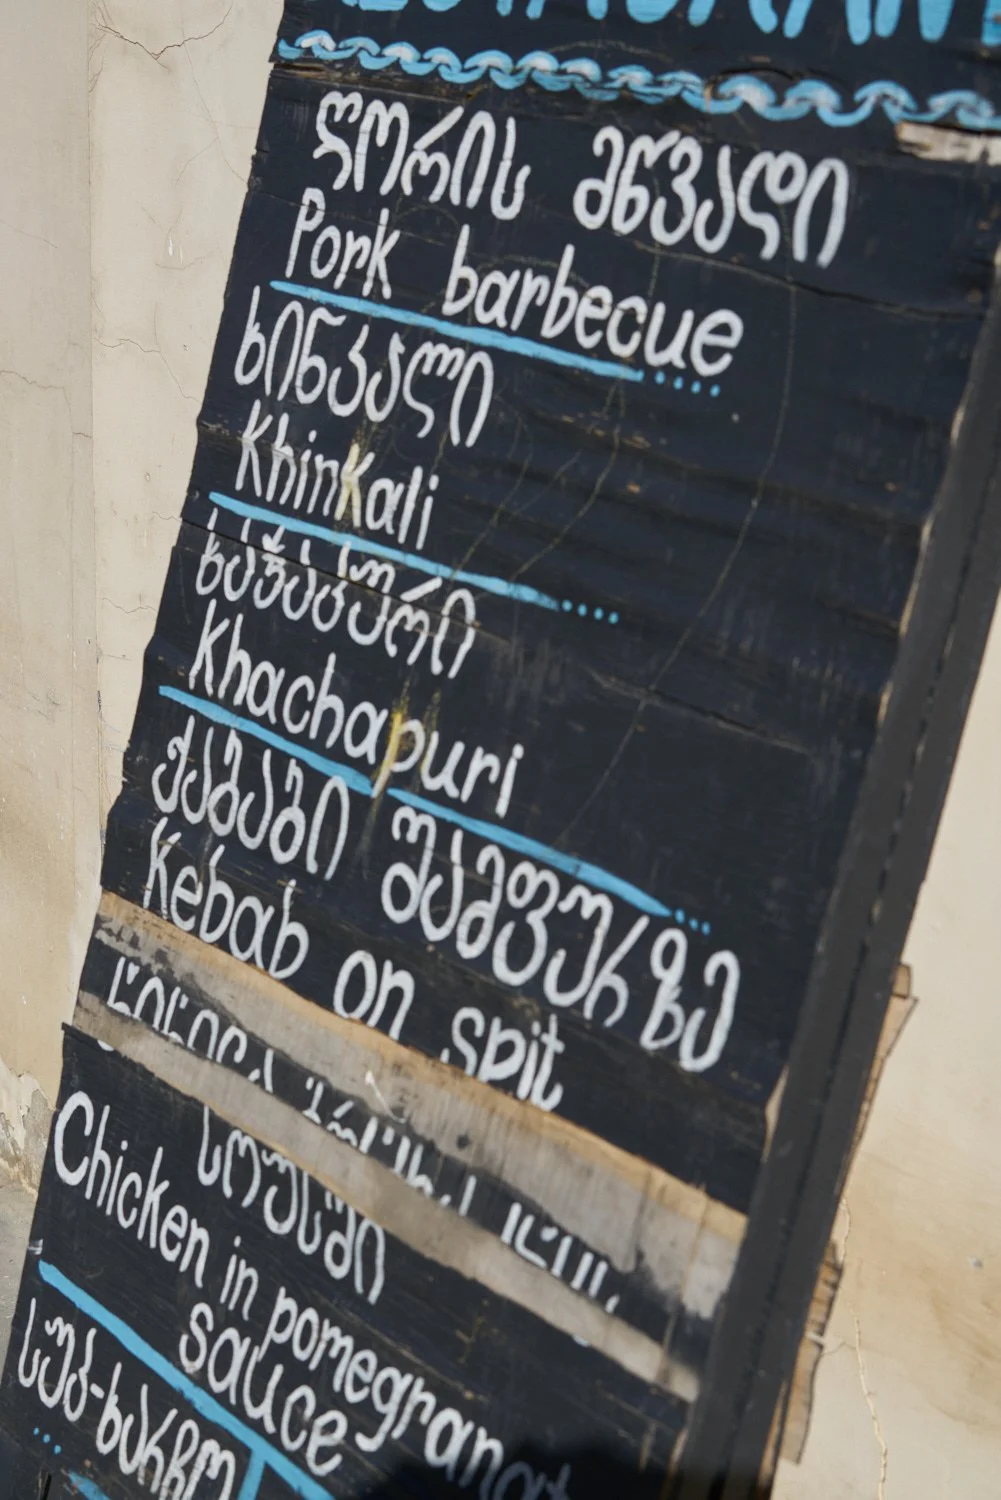 RESTAURANT
ღორის მწვადი
Pork barbecue
ხინკალი
Khinkali
ხაჭაპური
Khachapuri
ქაბაბი შამფურზე
Kebab on spit
სოუსში
Chicken in pomegranat
sauce
სუპ-ხარჩო